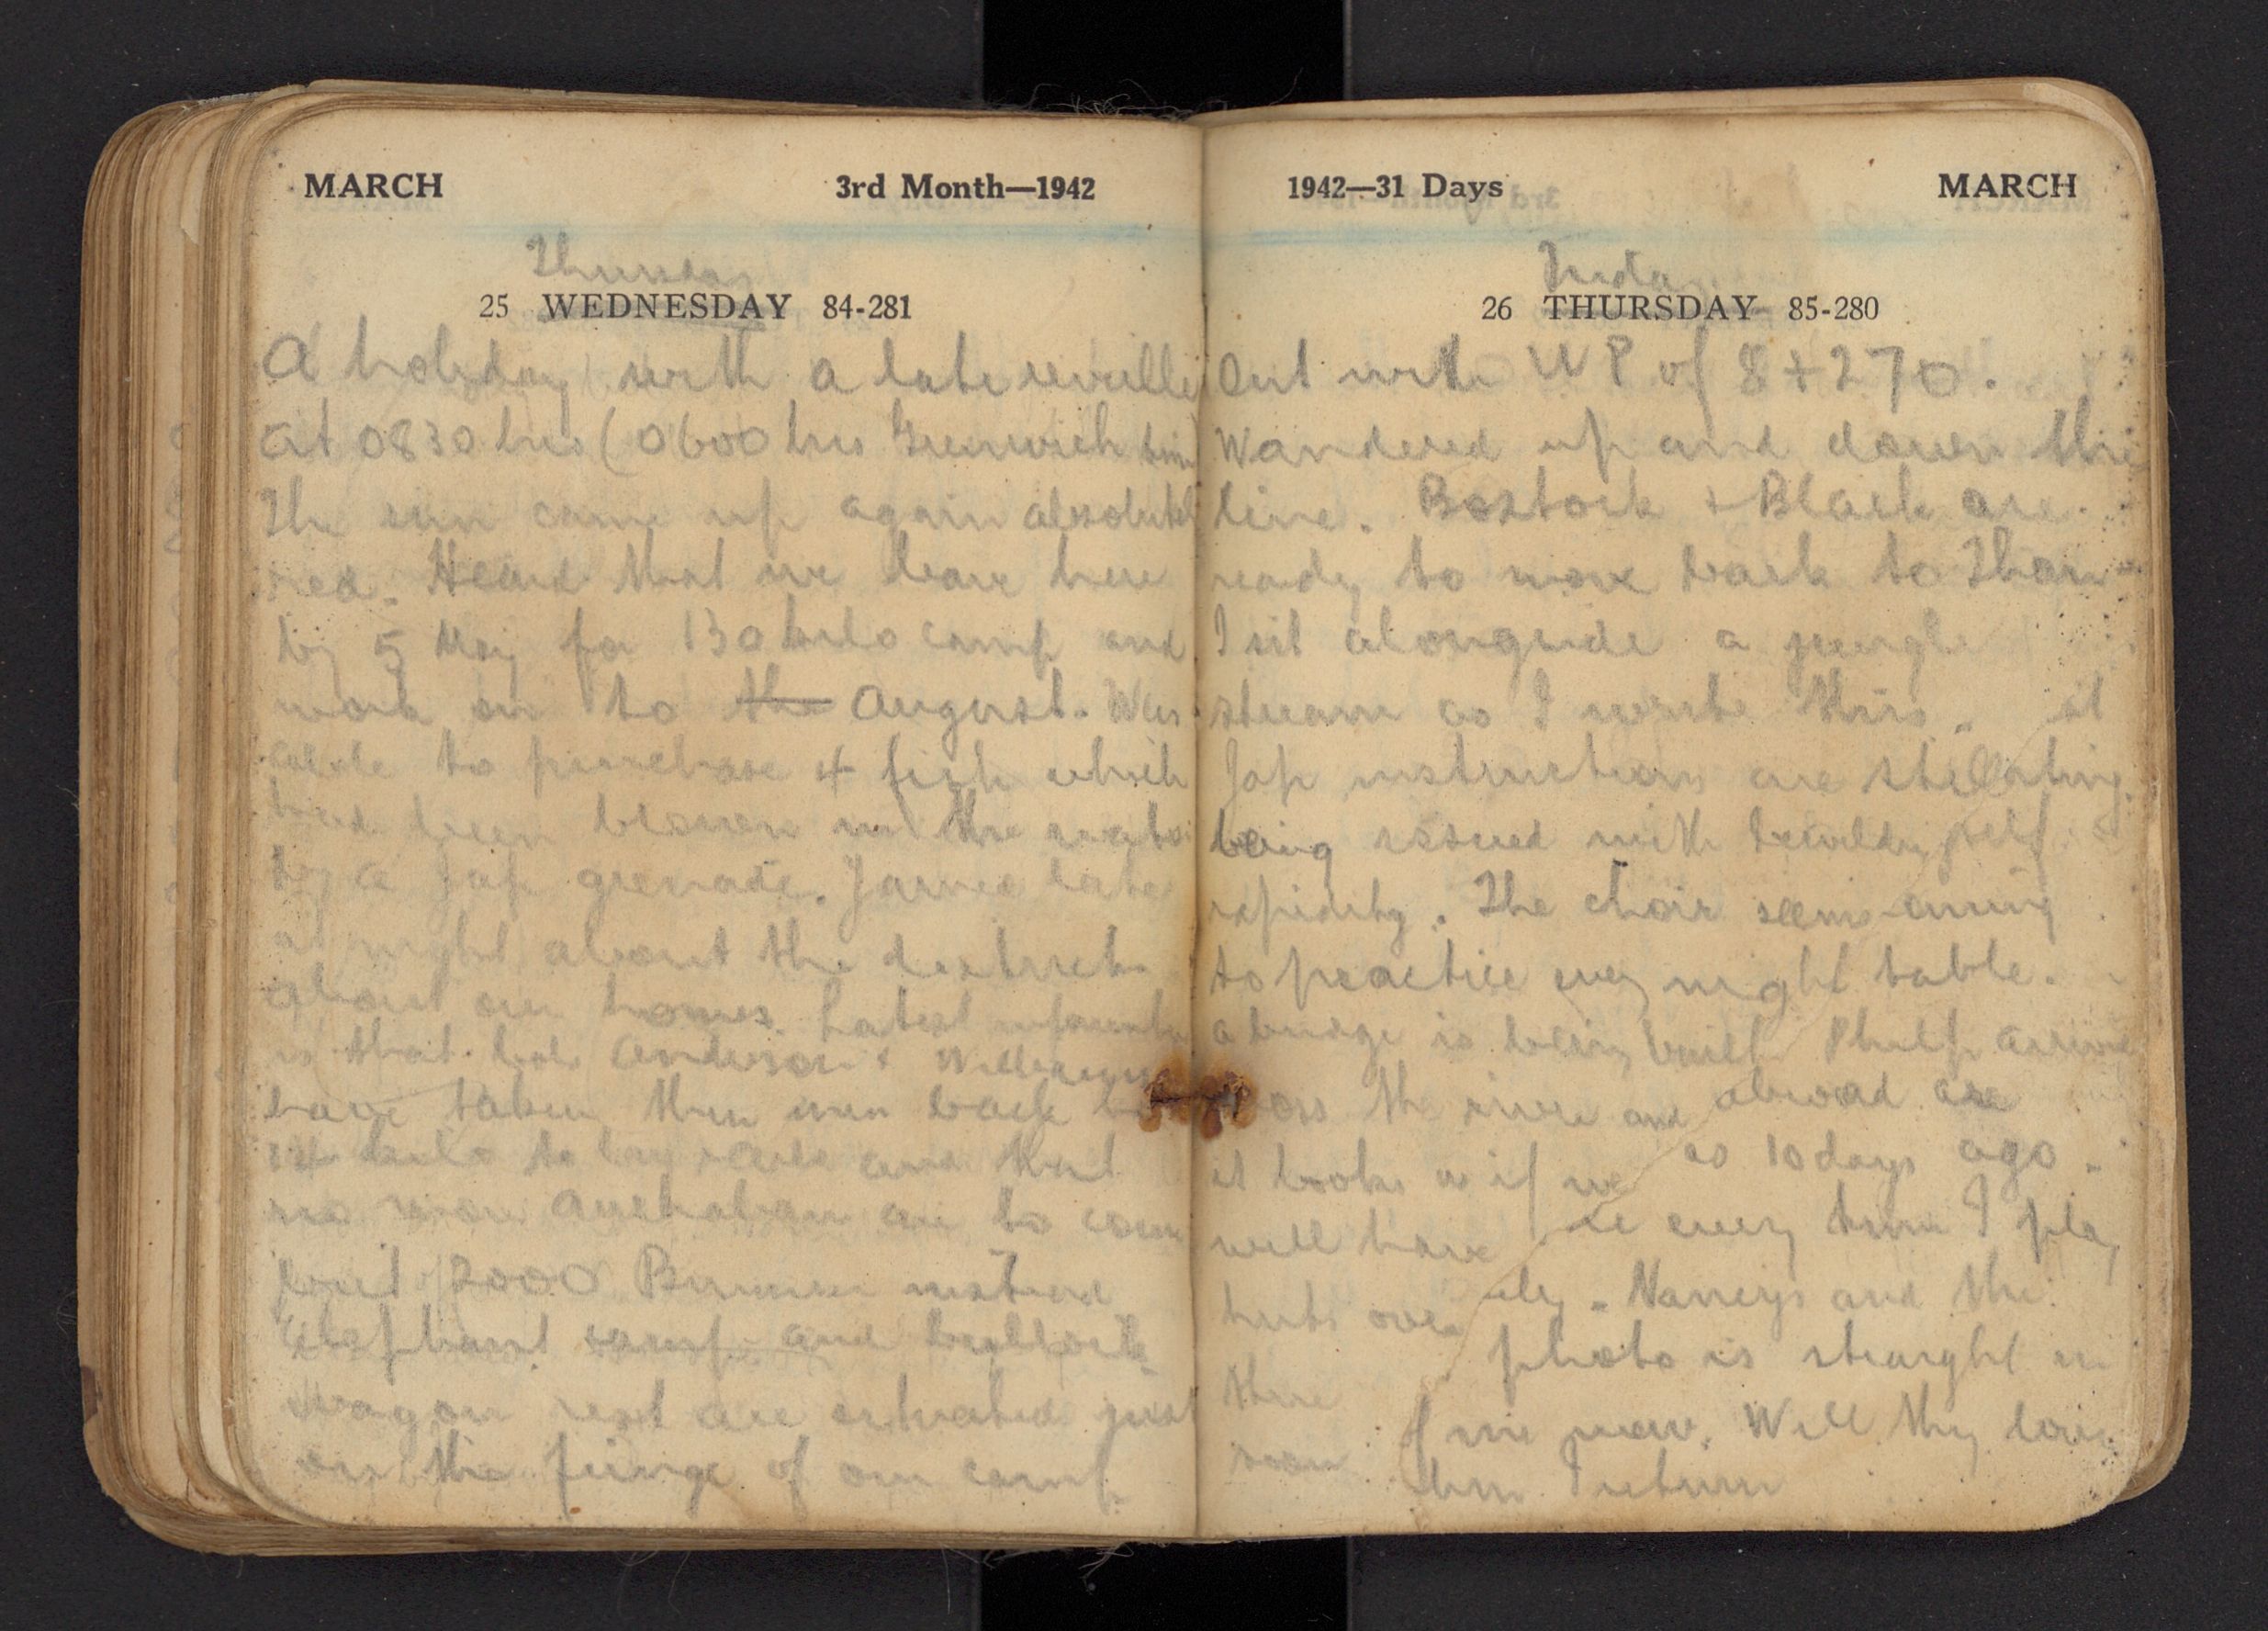 MARCH 3rd Month—1942
Thursday
25 WEDNESDAY 84-281
A holiday with a late reveille
at 0830 hrs (0600 hrs Greenwich time
The sun came up again absolutel
red. Heard that we leave here
by 5 May for 130 kilo camp and
work on to the August. Was
able to purchase 4 fish which
had been blown in the water
by a Jap grenade. late
at night about the
about our homes. Latest
is that Anderson & Williams
have taken their men back to
14 kilo to lay rails and that
no more Australian are to come
but 2000 Burmese instead
Elephant camp and bullock
wagon rest are situated just
on the fringe of our camp
1942—31 Days MARCH
Friday
26 THURSDAY 85-280
Out with WP of 8 + 270.
Wandered up and down the
line. Bostock + Black are
ready to move back to Than
I sit alongside a jungle
stream as I write this. at
Jap instructions are still
being issued with
rapidity. The choir seems
to practice every night table.
a bridge is being built
oss the river and abroad are
it looks as if we as 10 days ago.
will have every time I play
huts over Nancy's and the
there photo is straight in
soon f me now. Will they
I return